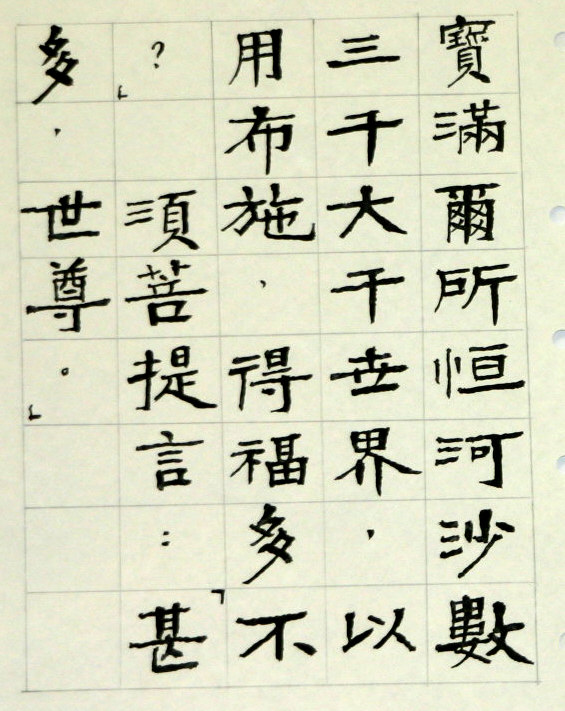 寶滿爾所恒河沙數
三千大千世界，以
用布施，得福多不
？」須菩提言：「甚
多，世尊。」